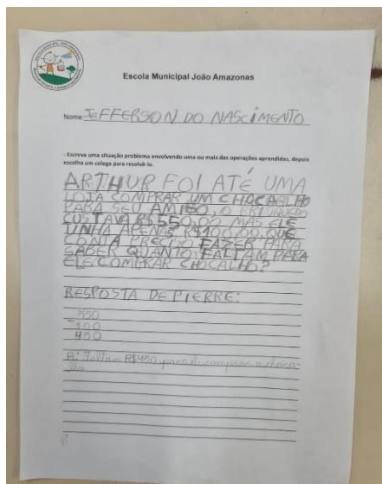 Escola Municipal João Amazonas
Nome: JEFFERSON DO NASCIMENTO
- Escreva uma situação problema envolvendo uma ou mais das operações aprendidas, depois
escolha um colega para resolvê-la.
ARTHUR FOI ATÉ UMA
LOJA COMPRAR UM CHOCALHO
PARA SEU AMIGO, O BRINQUEDO
CUSTAVA R$550,00 MAS ELE
TINHA APENAS R$100,00. QUE
CONTA PRECISO FAZER PARA
SABER QUANTO FALTAM PARA
ELE COMPRAR CHOCALHO?
RESPOSTA DE PIERRE:
550
-100
450
R: Faltam R$450 para comprar o choca-